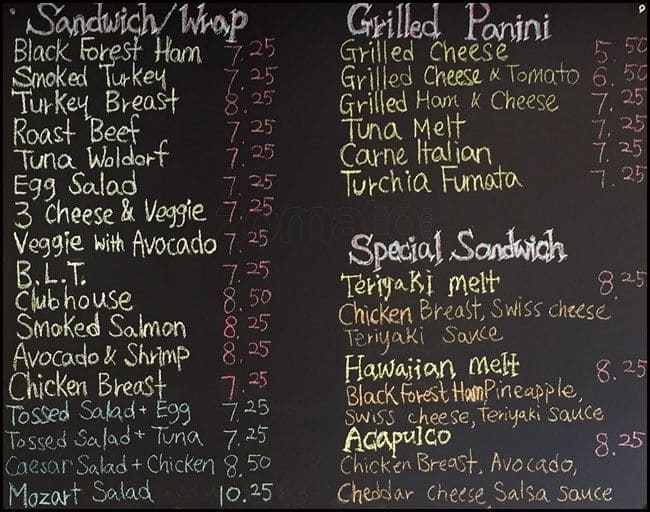 Sandwich/Wrap
Black Forest Ham 7.25
Smoked Turkey 7.25
Turkey Breast 8.25
Roast Beef 7.25
Tuna Woldorf 7.25
Egg Salad 7.25
3 Cheese & Veggie 7.25
Veggie with Avocado 7.25
B.L.T. 7.25
Clubhouse 8.50
Smoked Salmon 8.25
Avocado & Shrimp 8.25
Chicken Breast 7.25
Tossed Salad + Egg 7.25
Tossed Salad + Tuna 7.25
Caesar Salad + Chicken 8.50
Mozart Salad 10.25
Grilled Panini
Grilled Cheese 5.50
Grilled Cheese & Tomato 6.50
Grilled Ham & Cheese 7.25
Tuna Melt 7.25
Carne Italian 7.25
Turchia Fumata 7.25
Special Sandwich
Teriyaki melt 8.25
Chicken Breast, Swiss cheese
Teriyaki Sauce
Hawaiian melt 8.25
Black Forest Ham Pineapple,
Swiss cheese, Teriyaki sauce
Acapulco 8.25
Chicken Breast, Avocado,
Cheddar Cheese Salsa sauce
zomato